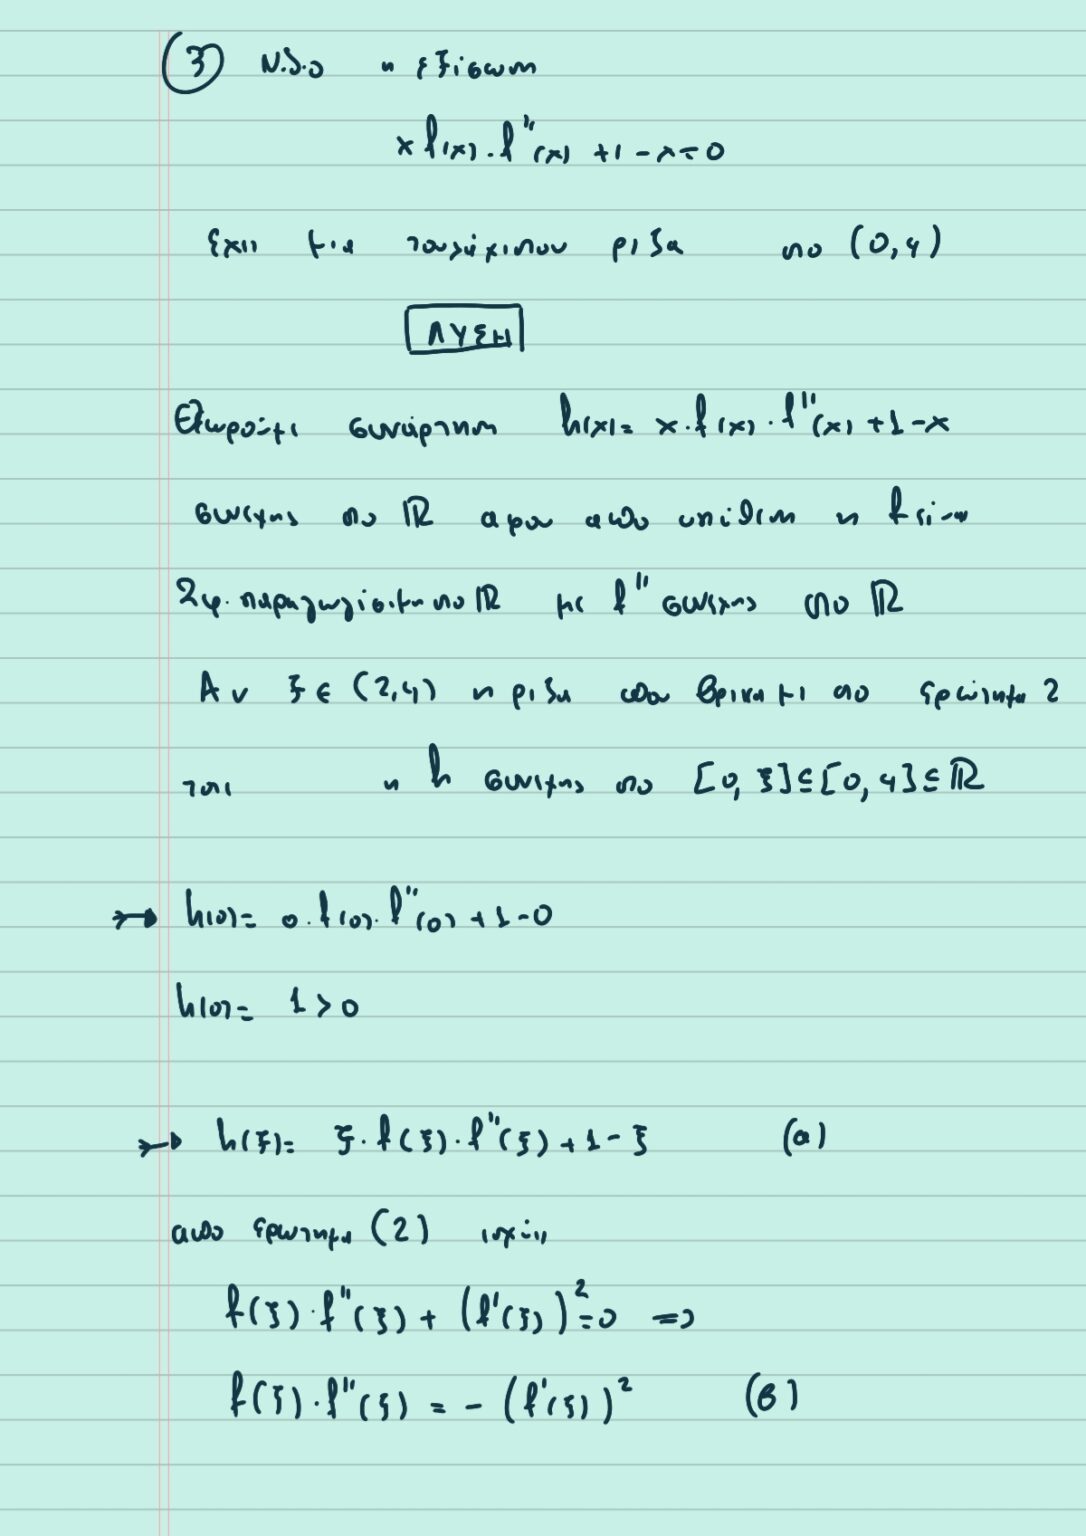 ③ Ν.δ.ο η εξίσωση
x f(x) . f''(x) + 1 - x = 0
έχει μια τουλάχιστον ρίζα στο (0,4)
ΛΥΣΗ
Θεωρούμε συνάρτηση h(x) = x . f(x) . f''(x) + 1 - x
συνεχης στο ℝ αφου απο υποθεση η f είναι
2 φ. παραγωγίσιμη στο ℝ με f'' συνεχης στο ℝ
Αν ξ ∈ (2,4) η ριζα που βρικαμε στο ερώτημα 2
τοτε η h συνεχης στο [0, ξ] ⊆ [0, 4] ⊆ ℝ
→ h(0) = 0 . f(0) . f''(0) + 1 - 0
h(0) = 1 > 0
→ h(ξ) = ξ . f(ξ) . f''(ξ) + 1 - ξ (α)
απο ερωτημα (2) ισχύει
f(ξ) . f''(ξ) + (f'(ξ))² = 0 =>
f(ξ) . f''(ξ) = - (f'(ξ))² (β)